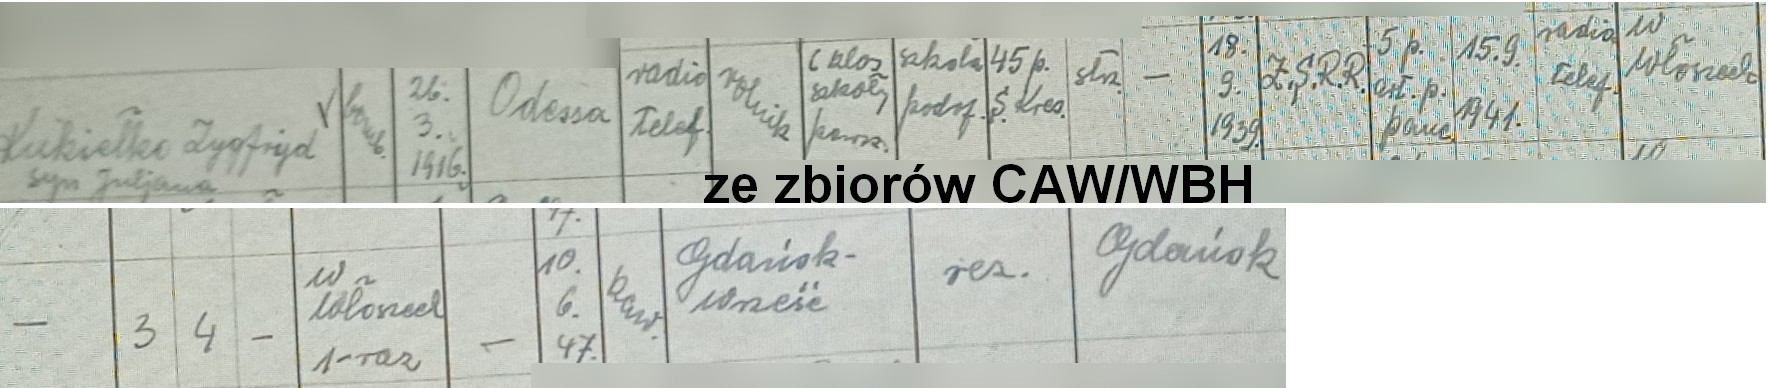 Kukiełko Zygfryd
syn Juljana
bomb.
26.
3.
1916.
Odessa
radio
Telef.
rolnik
6 klas
szkoły
powsz.
szkoła
podof.
45 p.
S. Kres.
strz.
—
18.
9.
1939.
Z.S.R.R.
5 p.
art. p.
panc
15.9.
1941.
radio
Telef.
W
Włoszech
ze zbiorów CAW/WBH
—
3
4
—
W
Włoszech
1-raz
—
17.
10.
6.
47.
kaw.
Gdańsk-
Wrzeszcz
rez.
Gdańsk